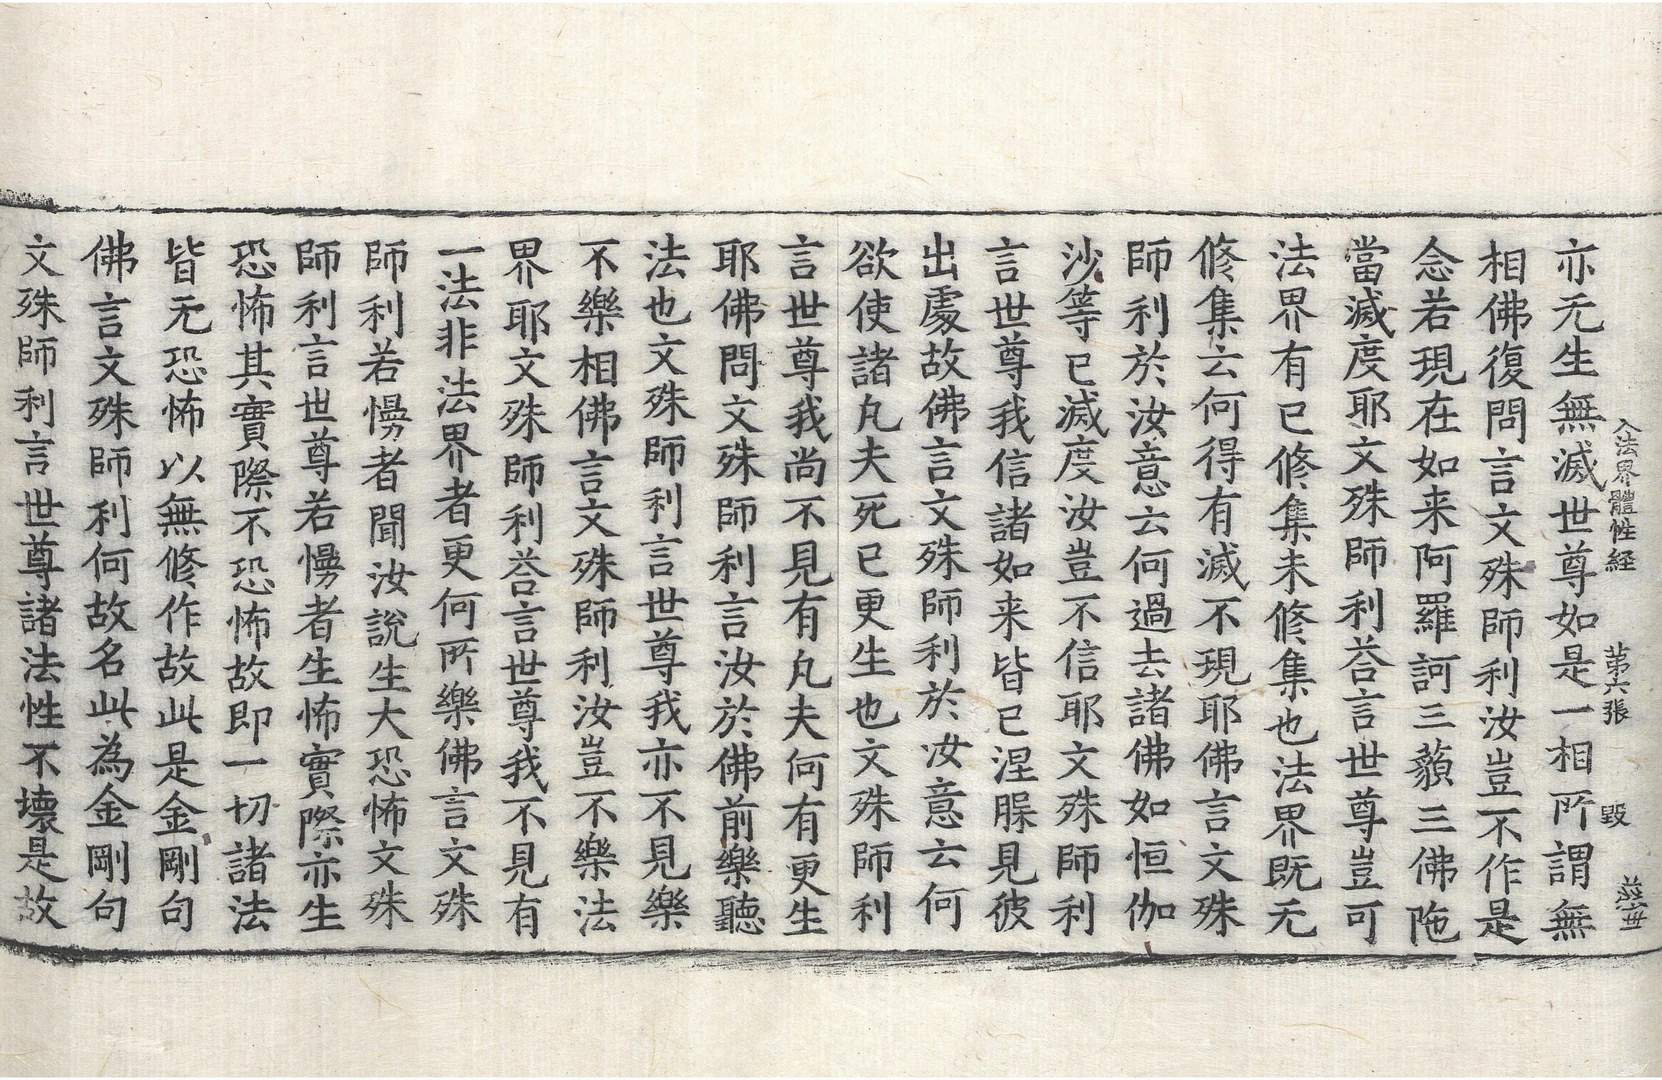 入法界體性経 第六張 毀
亦无生無滅世尊如是一相所謂無
相佛復問言文殊師利汝豈不作是
念若現在如来阿羅訶三藐三佛陁
當滅度耶文殊師利荅言世尊豈可
法界有已修集未修集也法界既无
修集云何得有滅不現耶佛言文殊
師利於汝意云何過去諸佛如恒伽
沙等已滅度汝豈不信耶文殊師利
言世尊我信諸如来皆已涅槃見彼
出處故佛言文殊師利於汝意云何
欲使諸凡夫死已更生也文殊師利
言世尊我尚不見有凡夫何有更生
耶佛問文殊師利言汝於佛前樂聽
法也文殊師利言世尊我亦不見樂
不樂相佛言文殊師利汝豈不樂法
界耶文殊師利荅言世尊我不見有
一法非法界者更何所樂佛言文殊
師利若慢者聞汝說生大恐怖文殊
師利言世尊若慢者生怖實際亦生
恐怖其實際不恐怖故即一切諸法
皆无恐怖以無修作故此是金剛句
佛言文殊師利何故名此為金剛句
文殊師利言世尊諸法性不壞是故